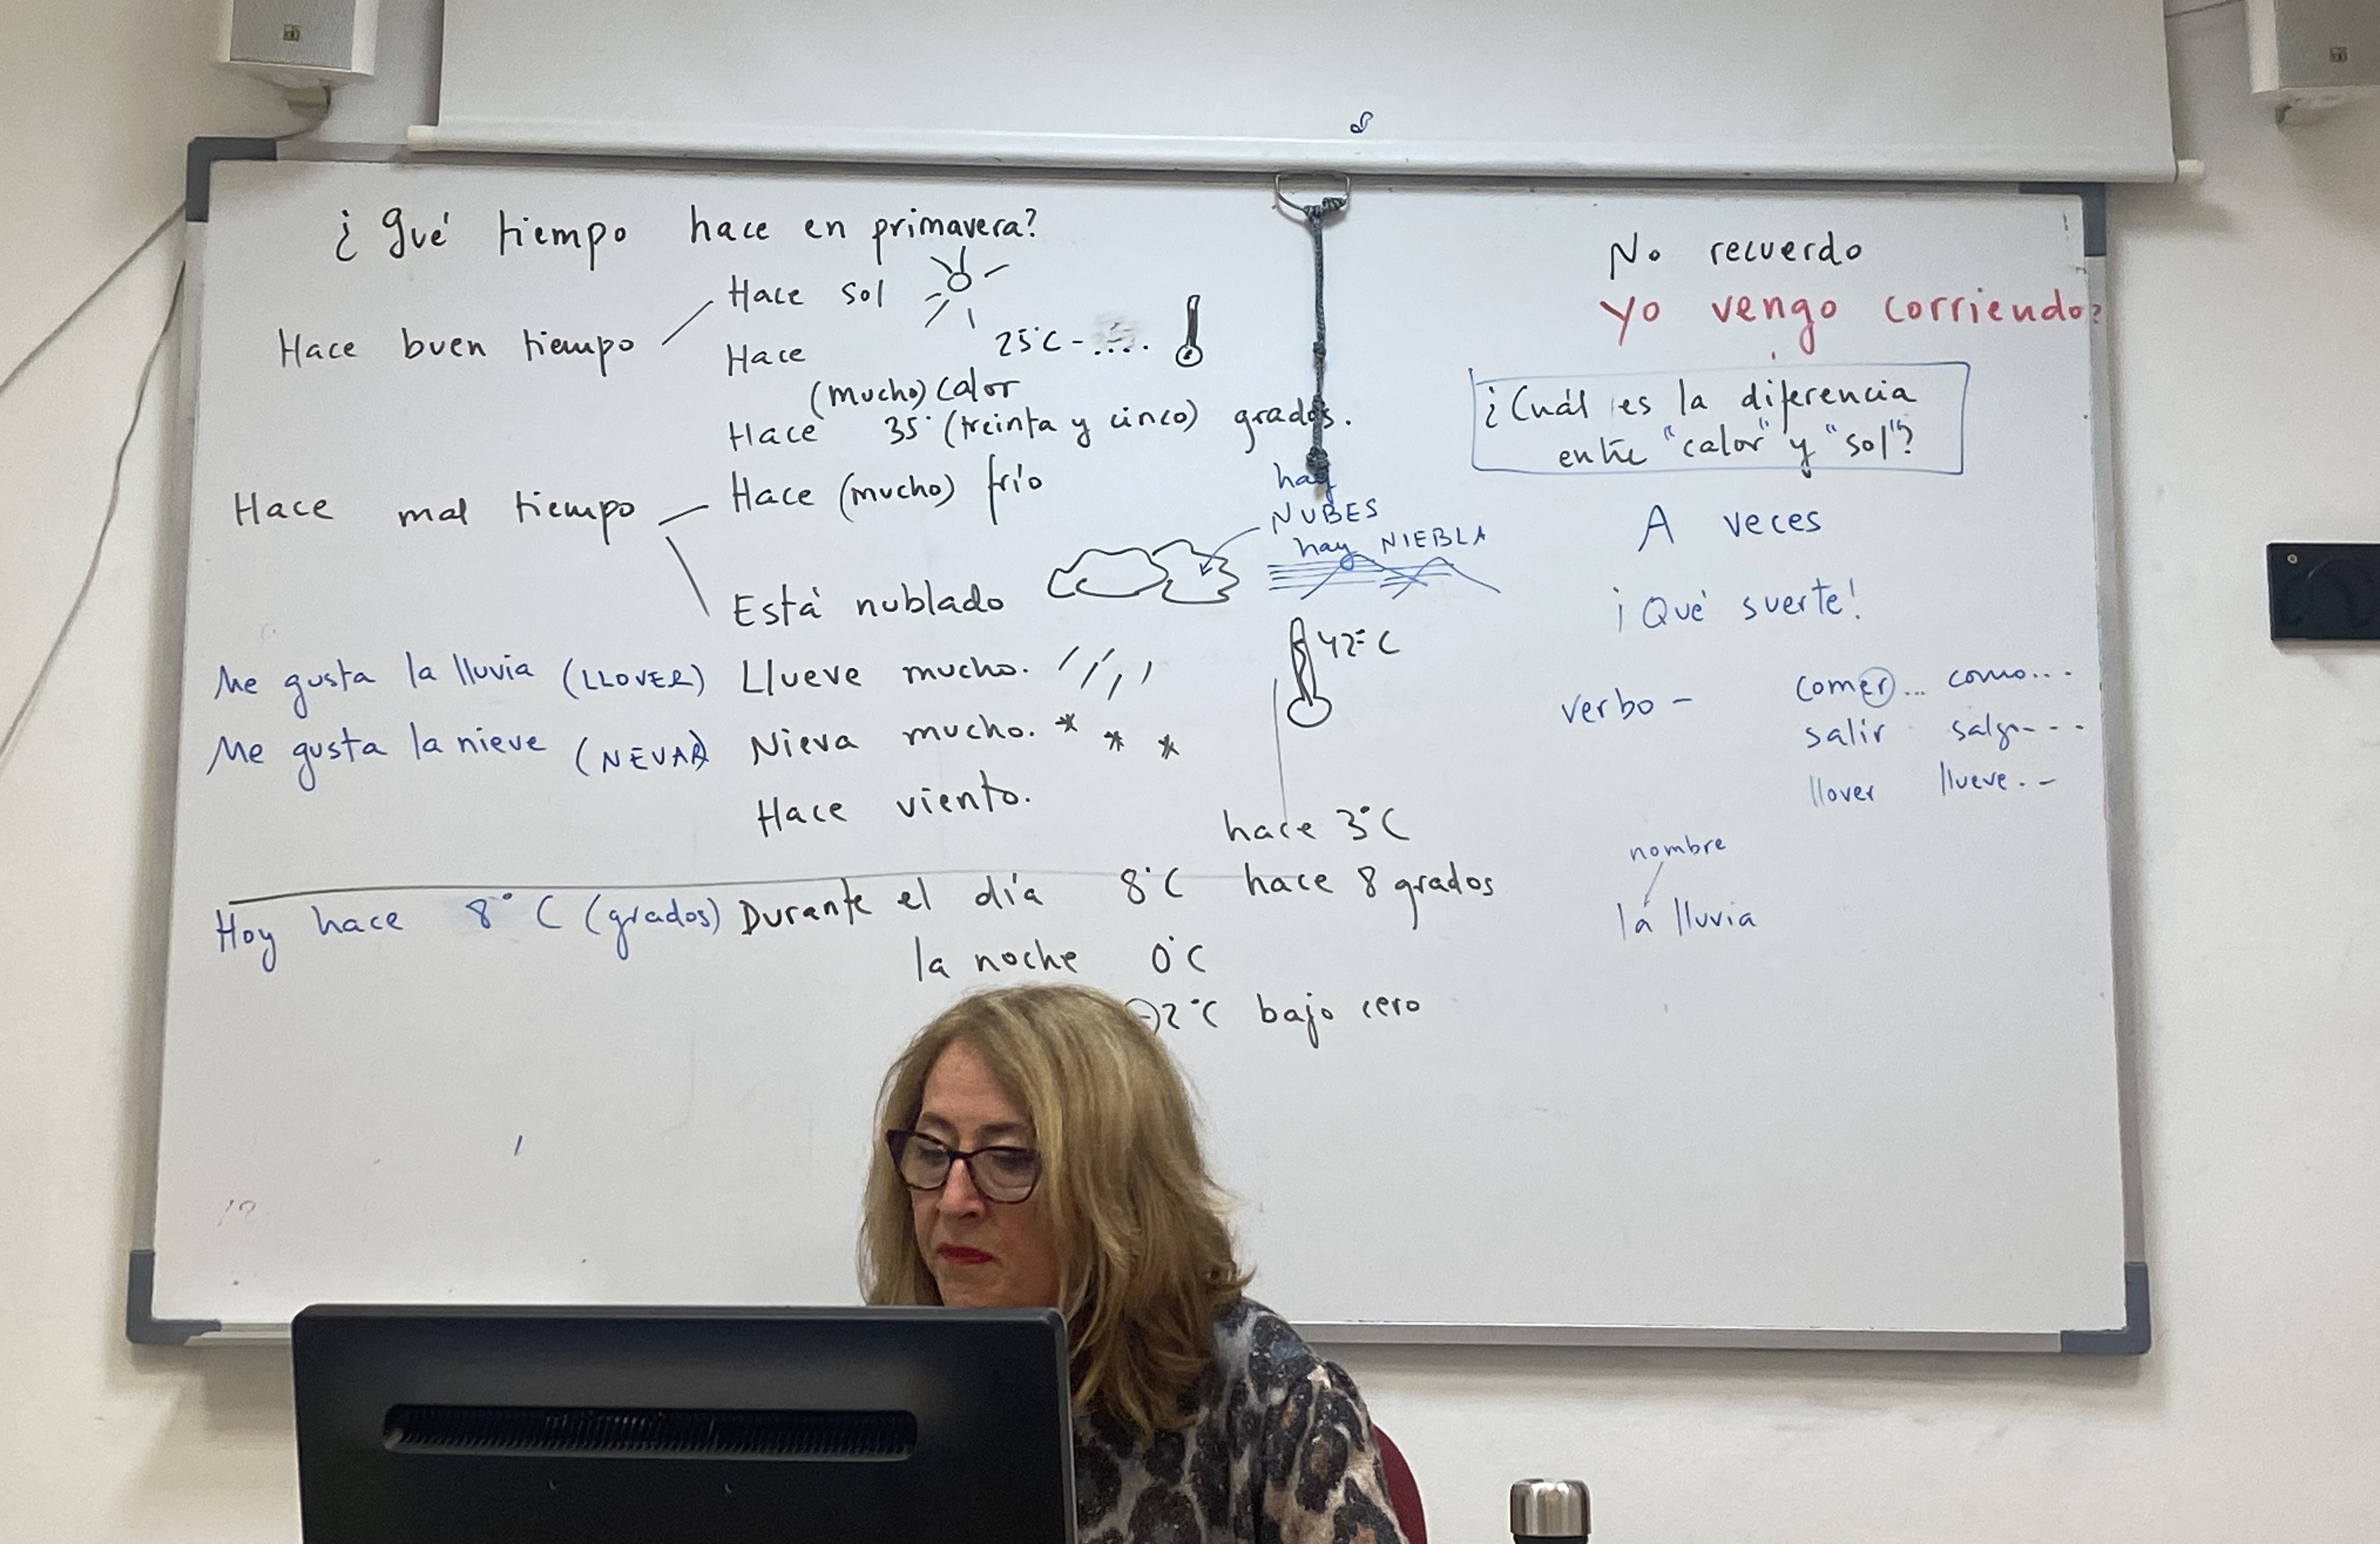 ¿Qué tiempo hace en primavera?
Hace buen tiempo
Hace sol
Hace
25°C - ....
(mucho) calor
Hace 35° (treinta y cinco) grados.
Hace mal tiempo
Hace (mucho) frío
hay
NUBES
hay NIEBLA
Está nublado
42°C
Me gusta la lluvia (LLOVER) Llueve mucho.
Me gusta la nieve (NEVAR) Nieva mucho.
Hace viento.
hace 3°C
Hoy hace 8°C (grados) Durante el día 8°C hace 8 grados
la noche 0°C
-2°C bajo cero
No recuerdo
Yo vengo corriendo?
¿Cuál es la diferencia
entre "calor" y "sol"?
A veces
¡Qué suerte!
verbo - comer... como...
salir salgo---
llover llueve.-
nombre
la lluvia